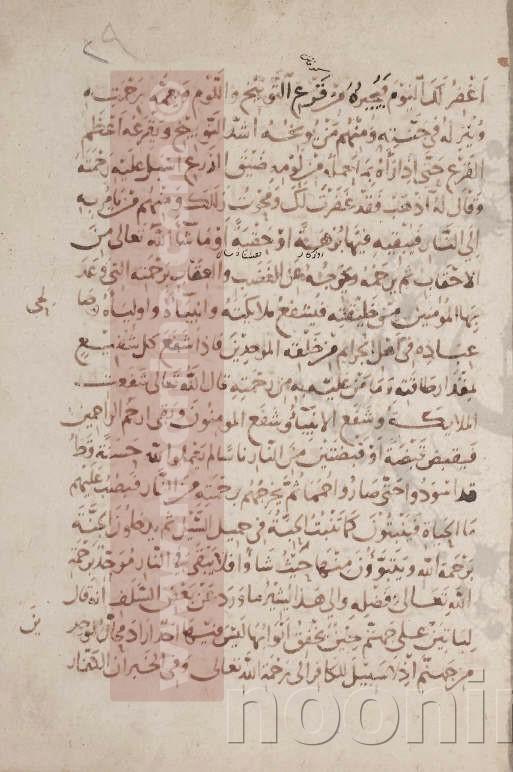 ٢٩
اغفر لك اليوم يجيره من قرع التوبيخ واللوم فيعمه برحمته
وينزله في جنته ومنهم من يوبخه اشد التوبيخ ويقرعه اعظم
القرع حتى اذا رآه بما عمله من لومه ضيق الذرع اسبل عليه رحمته
وقال له اذهب فقد غفرت لك ومنهم من يامر به
الى النار فيبقيه فيها برهة او حقبة او ما شا الله تعالى من
الاحقاب ثم يرحمه ويخرجه عن الغضب والعقاب برحمته التي وعد
بها المومنين من خليقته فيشفع ملايكته وانبياه واولياه
عباده في اهل الجرايم من خلقه الموحدين فاذا شفع كل شفيع
بمقدار طاقته وما من عليه به من رحمته قال الله تعالى شفعت
الملايكة وشفع الانبيا وشفع المومنون وبقي ارحم الراحمين
فيقبض قبضة او قبضتين من النار ناسا لم يعملوا لله حسنة قط
قد اسودوا حتى صاروا حمما ثم يخرجهم برحمته من النار فيصب عليهم
ما الحياة فينبتون كما تنبت الحبة في حميل السيل ثم يدخلون الجنة
برحمة الله ويتبوؤن منها حيث شاوا فلا يبقى في النار موحد برحمة
الله تعالى وفضله والى هذا يشير ما ورد عن بعض السلف انه قال
لياتين على جهنم حين تخفق ابوابها ليس فيها احد اراد
من جهنم اذ لا سبيل للكافر الى رحمة الله تعالى وفي الخبر ان
noonin